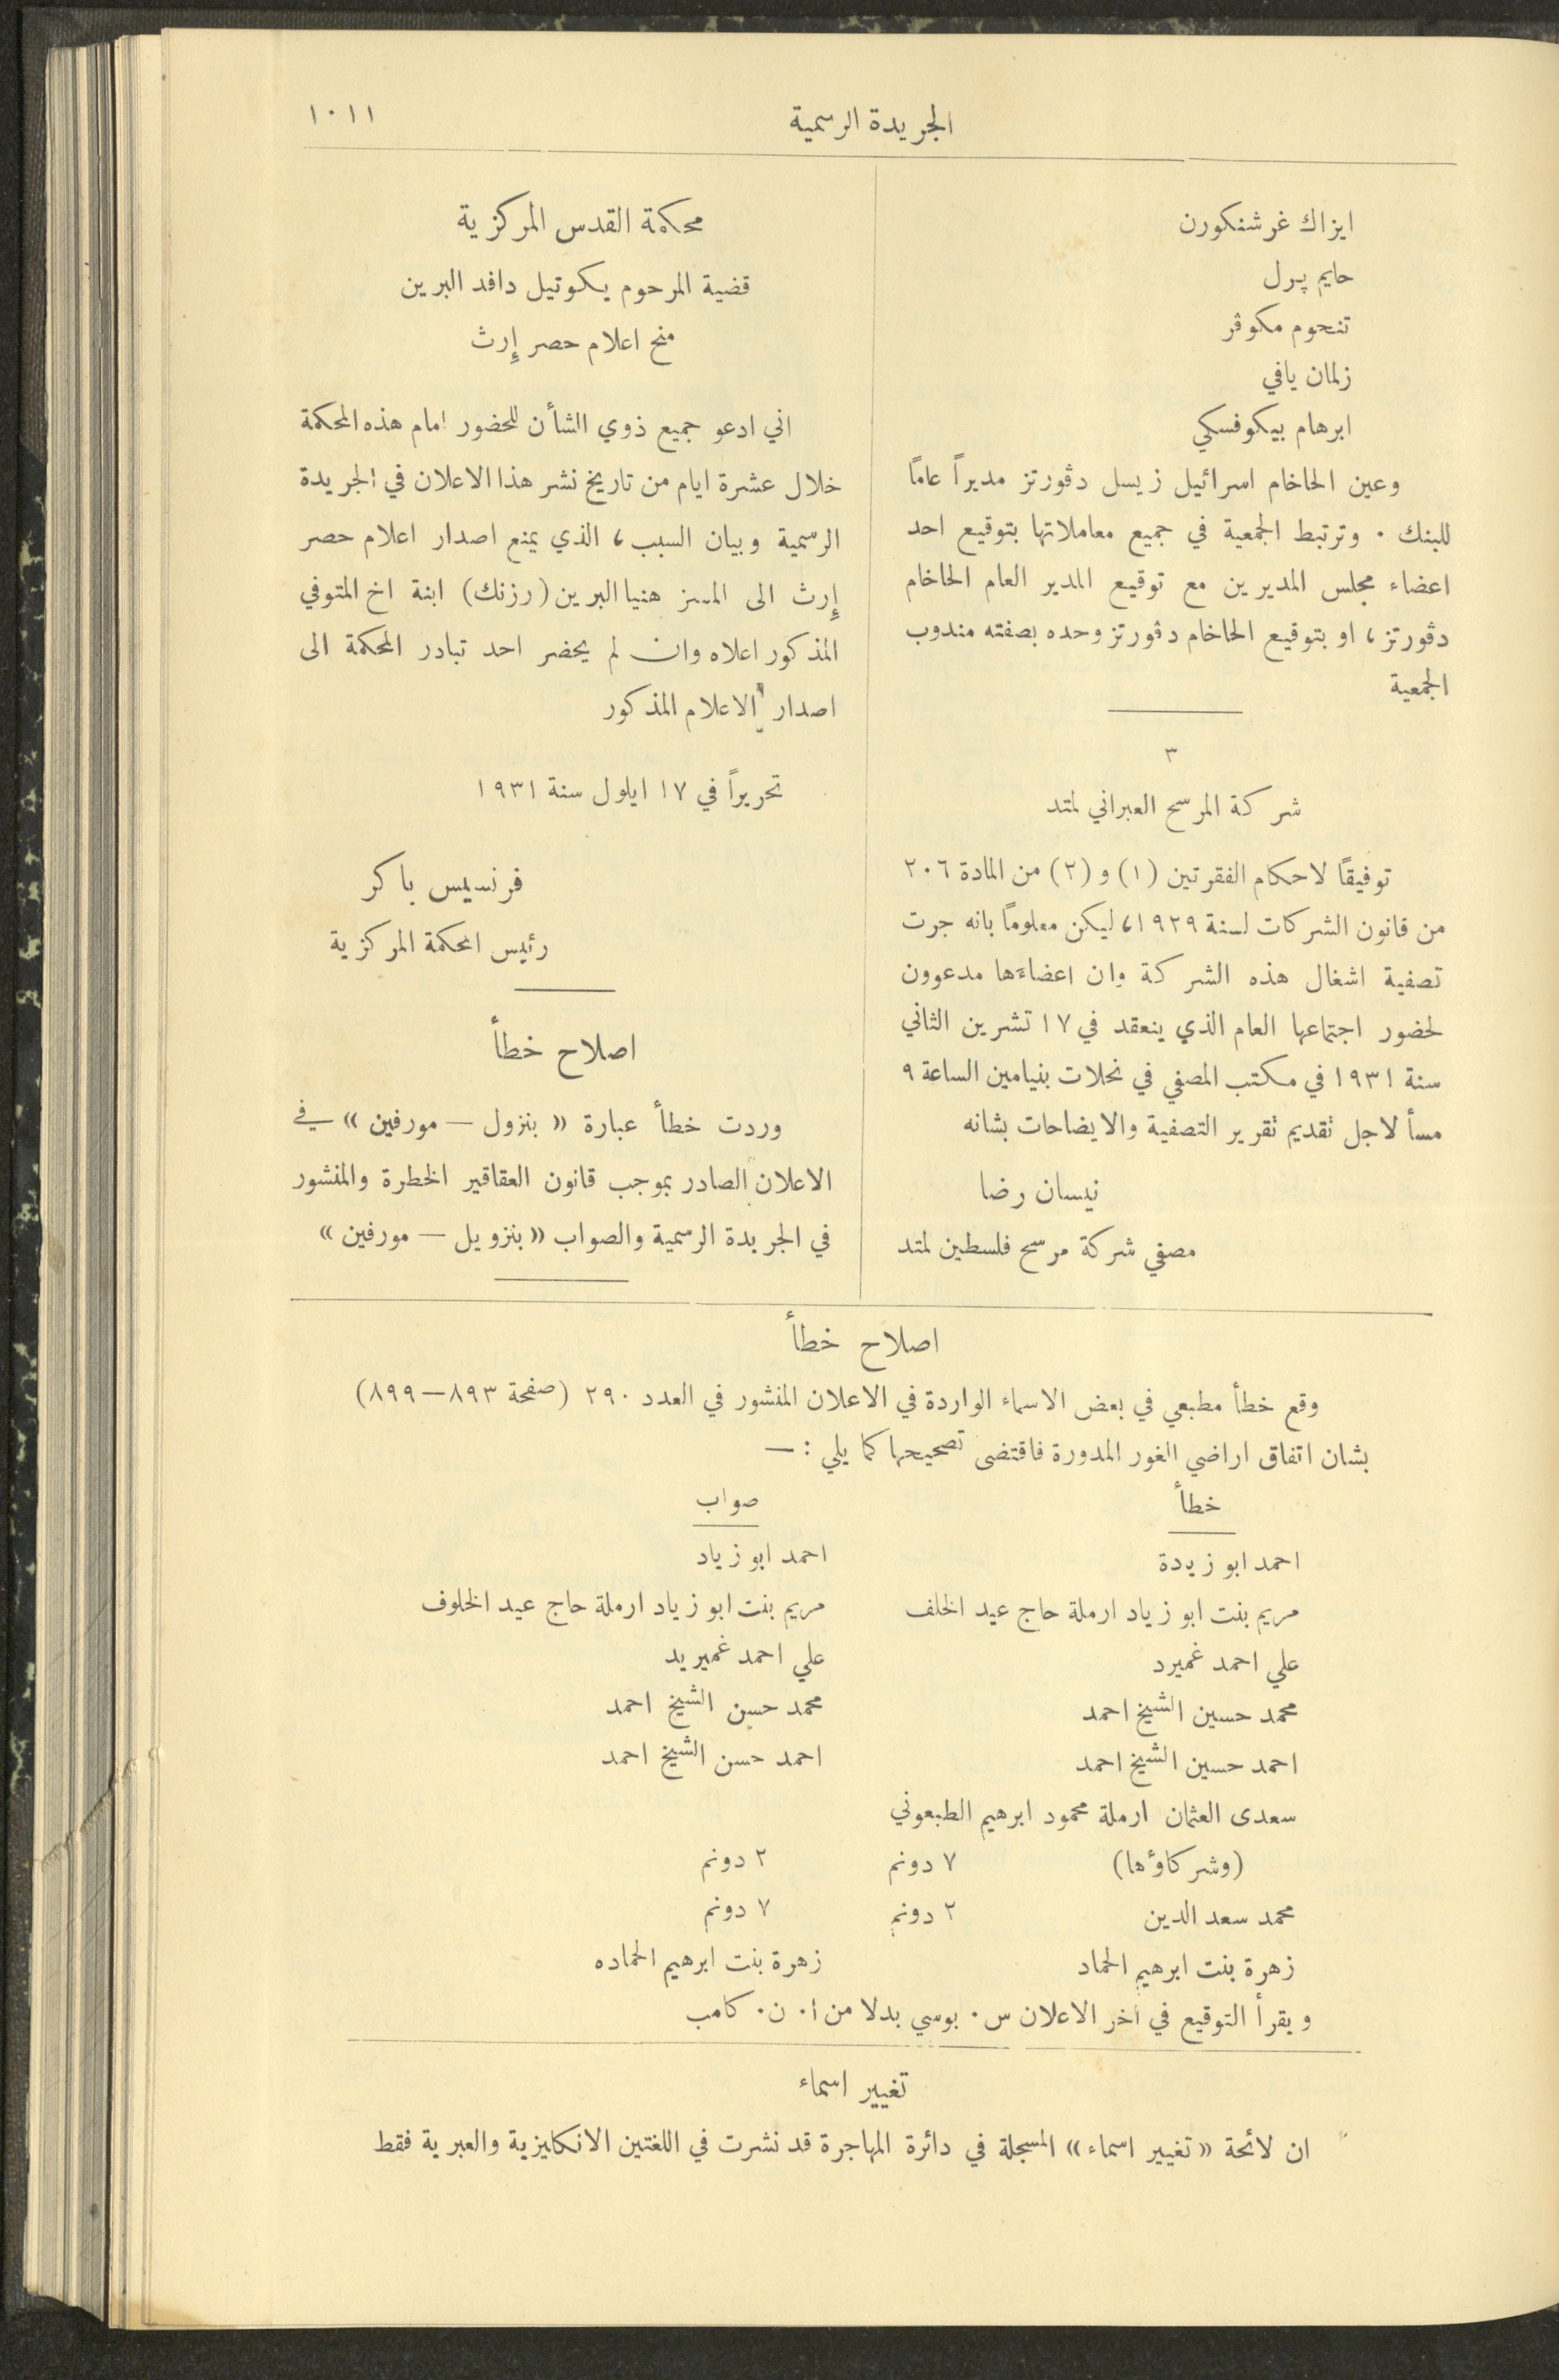 الجريدة الرسمية
١٠١١
ايزاك غرشنكورن
حايم پرل
تنحوم مكوڤر
زلمان يافي
ابرهام بيكوفسكي
وعين الحاخام اسرائيل زيسل دڤورتز مديراً عاماً
للبنك ٠ وترتبط الجمعية في جميع معاملاتها بتوقيع احد
اعضاء مجلس المديرين مع توقيع المدير العام الحاخام
دڤورتز، او بتوقيع الحاخام دڤورتز وحده بصفته مندوب
الجمعية
٣
شركة المرسح العبراني لمتد
توفيقاً لاحكام الفقرتين (١) و (٢) من المادة ٢٠٦
من قانون الشركات لسنة ١٩٢٩، ليكن معلوماً بانه جرت
تصفية اشغال هذه الشركة وان اعضاءَها مدعوون
لحضور اجتماعها العام الذي ينعقد في ١٧ تشرين الثاني
سنة ١٩٣١ في مكتب المصفي في نحلات بنيامين الساعة ٩
مسأ لاجل تقديم تقرير التصفية والايضاحات بشانه
نيسان رضا
مصفي شركة مرسح فلسطين لمتد
محكمة القدس المركزية
قضية المرحوم يكوتيل دافد البرين
منح اعلام حصر إرث
اني ادعو جميع ذوي الشأن للحضور امام هذه المحكمة
خلال عشرة ايام من تاريخ نشر هذا الاعلان في الجريدة
الرسمية وبيان السبب، الذي يمنع اصدار اعلام حصر
إرث الى المسز هنيا البرين (رزنك) ابنة اخ المتوفي
المذكور اعلاه وان لم يحضر احد تبادر المحكمة الى
اصدار الاعلام المذكور
تحريراً في ١٧ ايلول سنة ١٩٣١
فرنسيس باكر
رئيس المحكمة المركزية
اصلاح خطأ
وردت خطأ عبارة « بنزول — مورفين » في
الاعلان الصادر بموجب قانون العقاقير الخطرة والمنشور
في الجريدة الرسمية والصواب « بنزويل — مورفين »
اصلاح خطأ
وقع خطأ مطبعي في بعض الاسماء الواردة في الاعلان المنشور في العدد ٢٩٠ (صفحة ٨٩٣—٨٩٩)
بشان اتفاق اراضي الغور المدورة فاقتضى تصحيحها كما يلي : —
خطأ صواب
احمد ابو زيدة احمد ابو زياد
مريم بنت ابو زياد ارملة حاج عيد الخلف مريم بنت ابو زياد ارملة حاج عيد الخلوف
علي احمد غميرد علي احمد غميريد
محمد حسين الشيخ احمد محمد حسن الشيخ احمد
احمد حسين الشيخ احمد احمد حسن الشيخ احمد
سعدى العثمان ارملة محمود ابرهيم الطبعوني
(وشركاؤها) ٧ دونم ٢ دونم
محمد سعد الدين ٢ دونم ٧ دونم
زهرة بنت ابرهيم الحماد زهرة بنت ابرهيم الحماده
ويقرأ التوقيع في آخر الاعلان س٠ بوسي بدلا من ا٠ ن٠ كامب
تغيير اسماء
ان لائحة « تغيير اسماء » المسجلة في دائرة المهاجرة قد نشرت في اللغتين الانكليزية والعبرية فقط